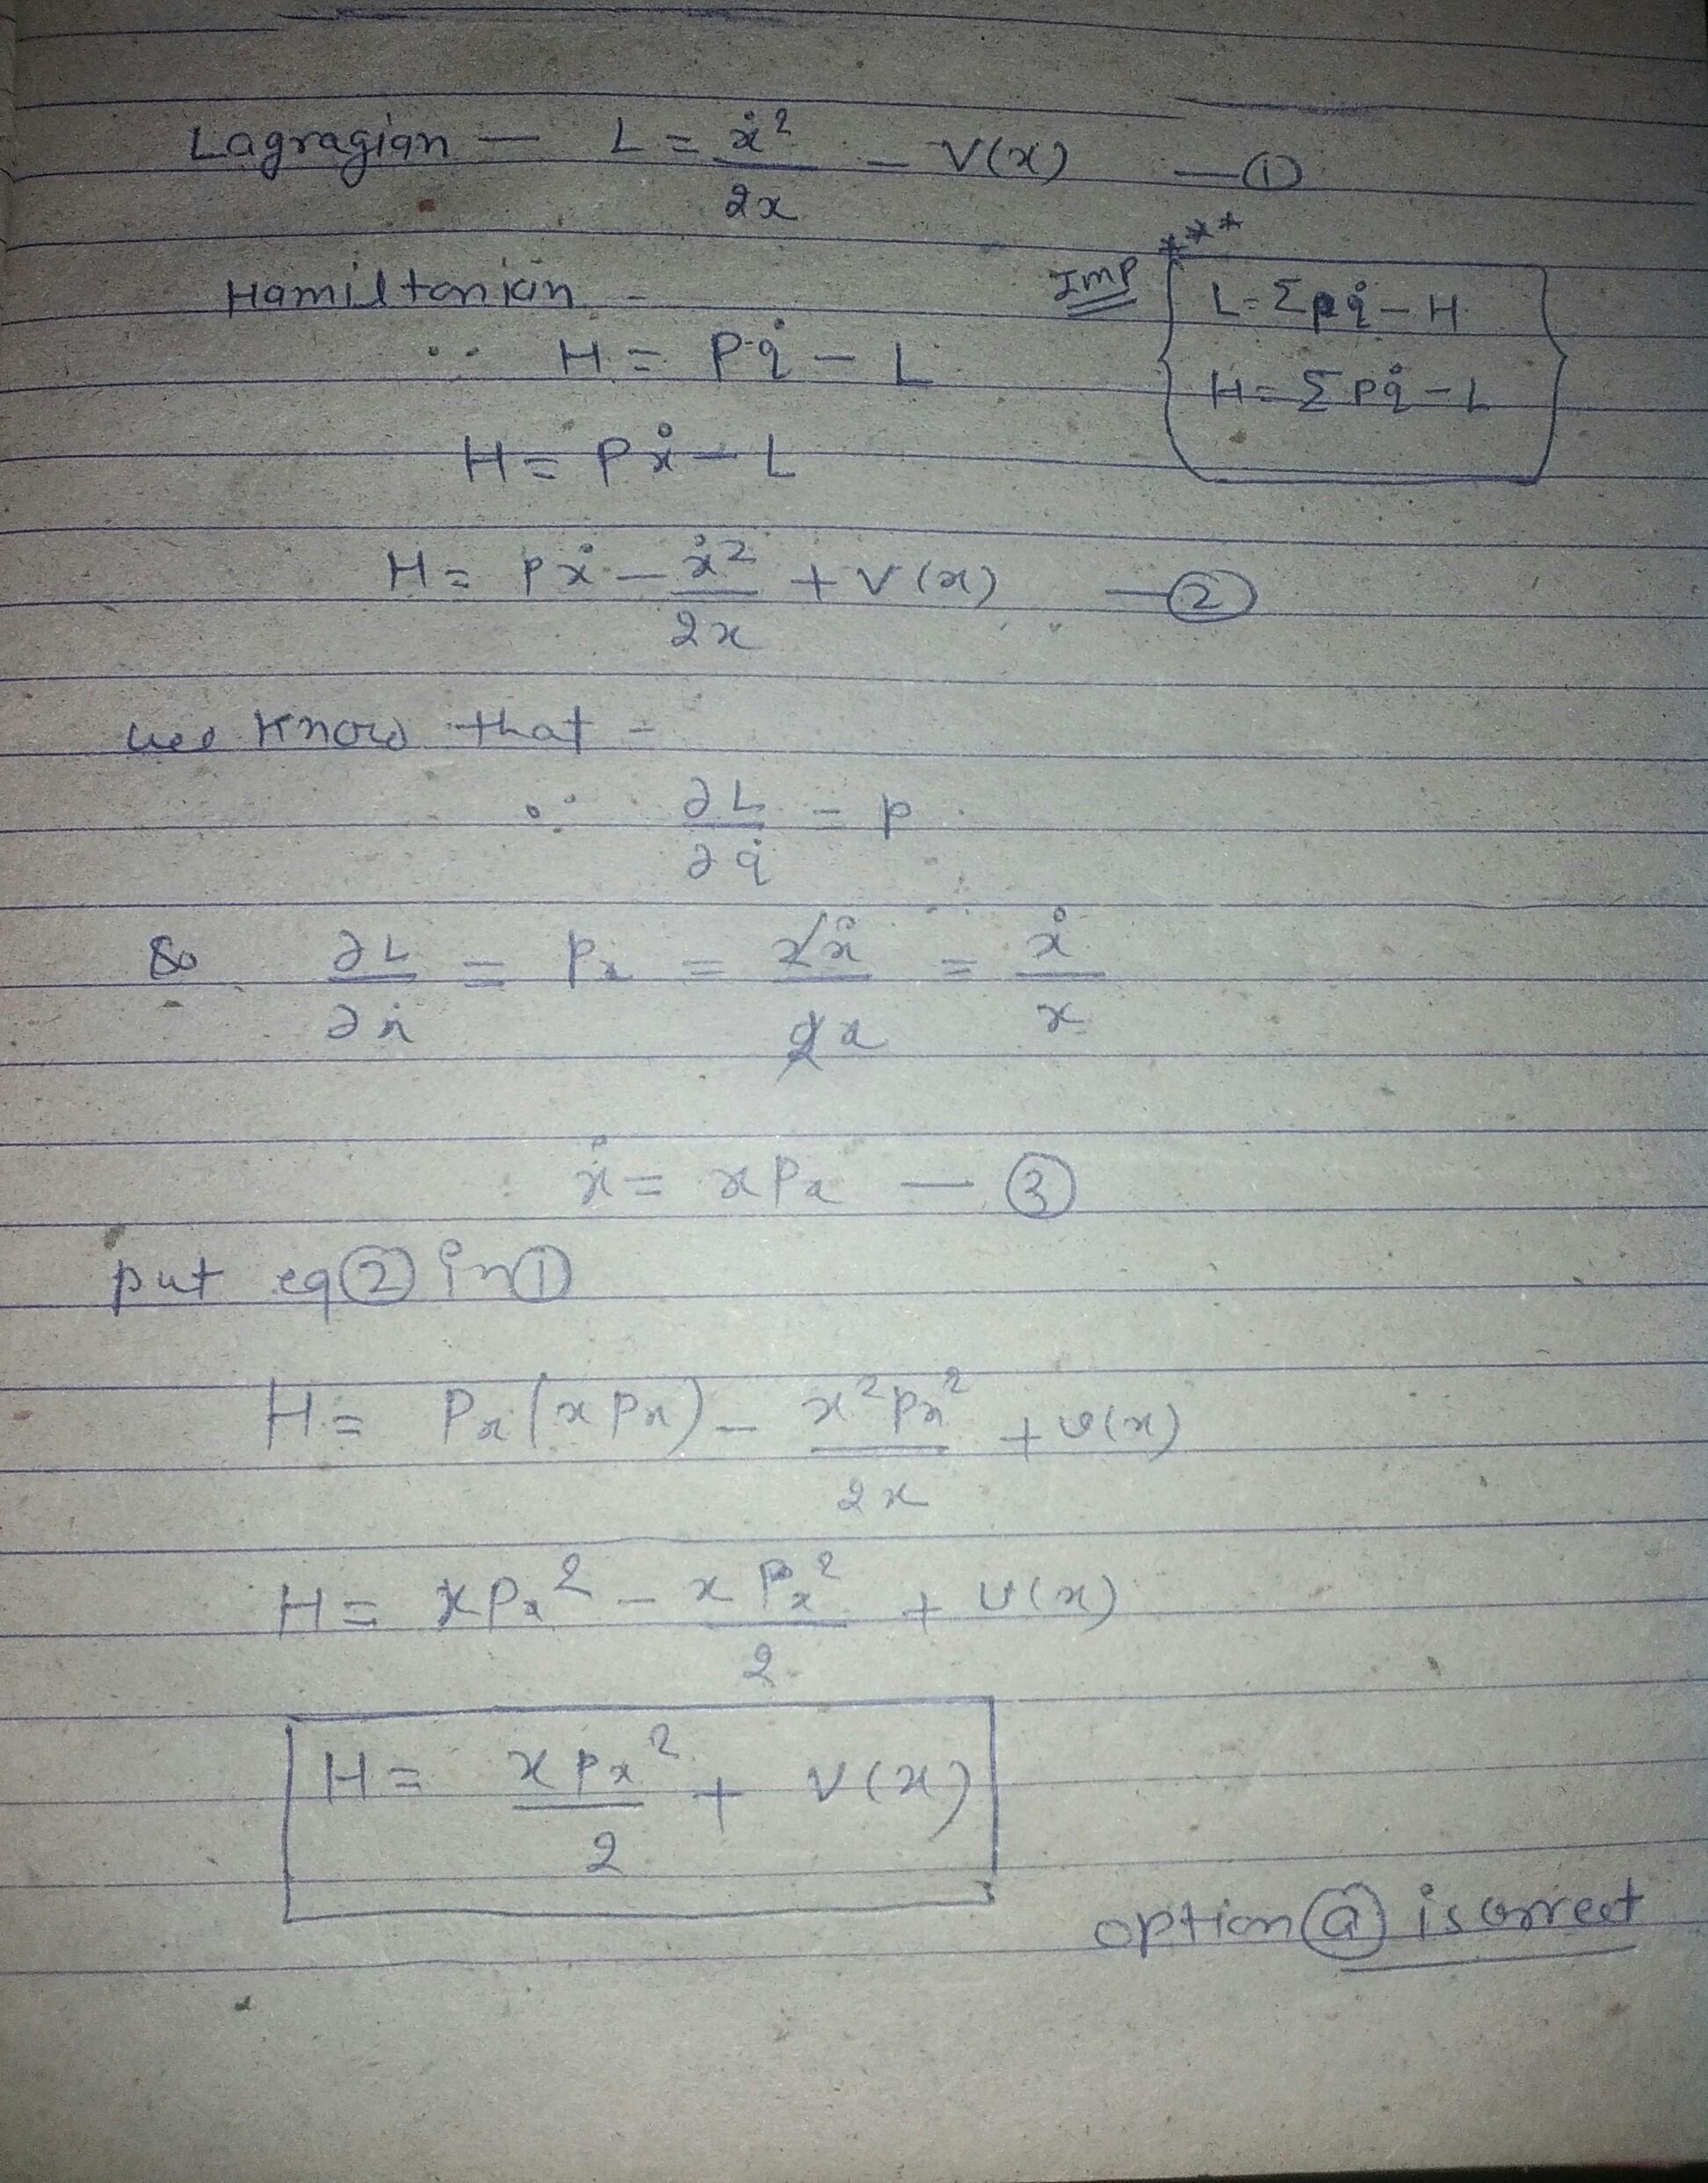 Lagragian — L = ẋ²/2x - V(x) —①
Hamiltonian -
Imp *** { L = Σpq̇ - H
∵ H = p·q̇ - L
H = Σpq̇ - L }
H = pẋ - L
H = pẋ - ẋ²/2x + V(x) —②
we know that -
∵ ∂L/∂q̇ = p
So ∂L/∂ẋ = Pₓ = 2ẋ/2x = ẋ/x
ẋ = xPₓ — ③
put eq② in①
H = Pₓ(xpₓ) - x²pₓ²/2x + v(x)
H = xPₓ² - xPₓ²/2 + v(x)
H = xpₓ²/2 + V(x)
option ⓐ is correct